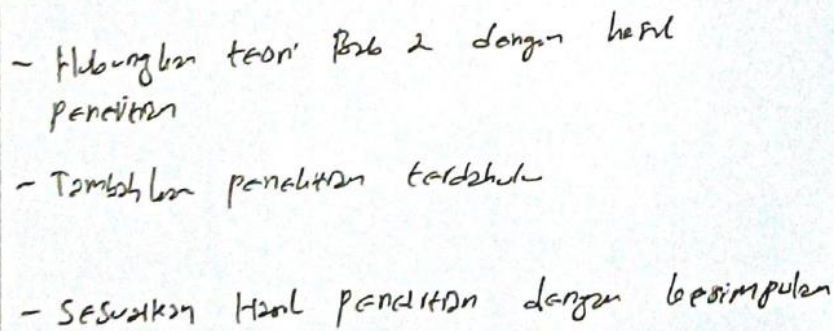 - Hubungkan teori Bab 2 dengan hasil
penelitian
- Tambahkan penelitian terdahulu
- Sesuaikan Hasil penelitian dengan kesimpulan